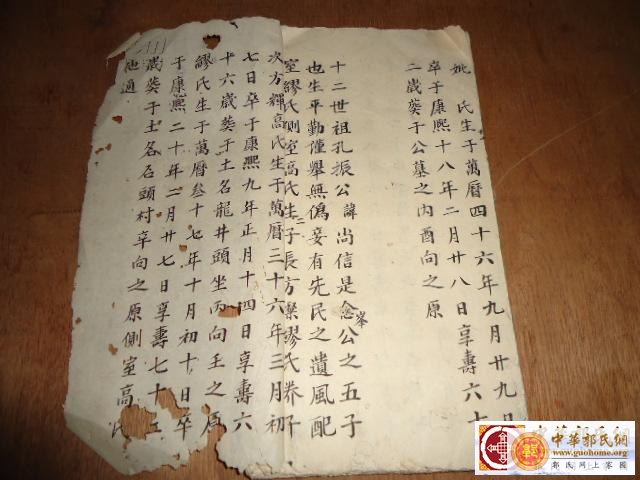 姚氏生于萬曆四十六年九月廿九日
卒于康熙十八年二月廿八日享壽六十
二歲葵于公墓之内酉向之原
十二世祖孔振公諱尚信是念峯公之五子
也生平勤僅舉無偽妄有先民之遺風配
室繆氏側室高氏生二子長方燦繆氏养子
次方輝高氏生于萬曆三十六年三月初
七日卒于康熙九年正月十四日享壽六
十六歲葵于土名龍井頭坐丙向壬之原
繆氏生于萬曆叁十七年十月初十日卒
于康熙二十年二月廿七日享壽七十三
歲葵于土名石頭村辛向之原側室高氏
他適
中華郭氏網
www.guohome.org
郭氏网上家園